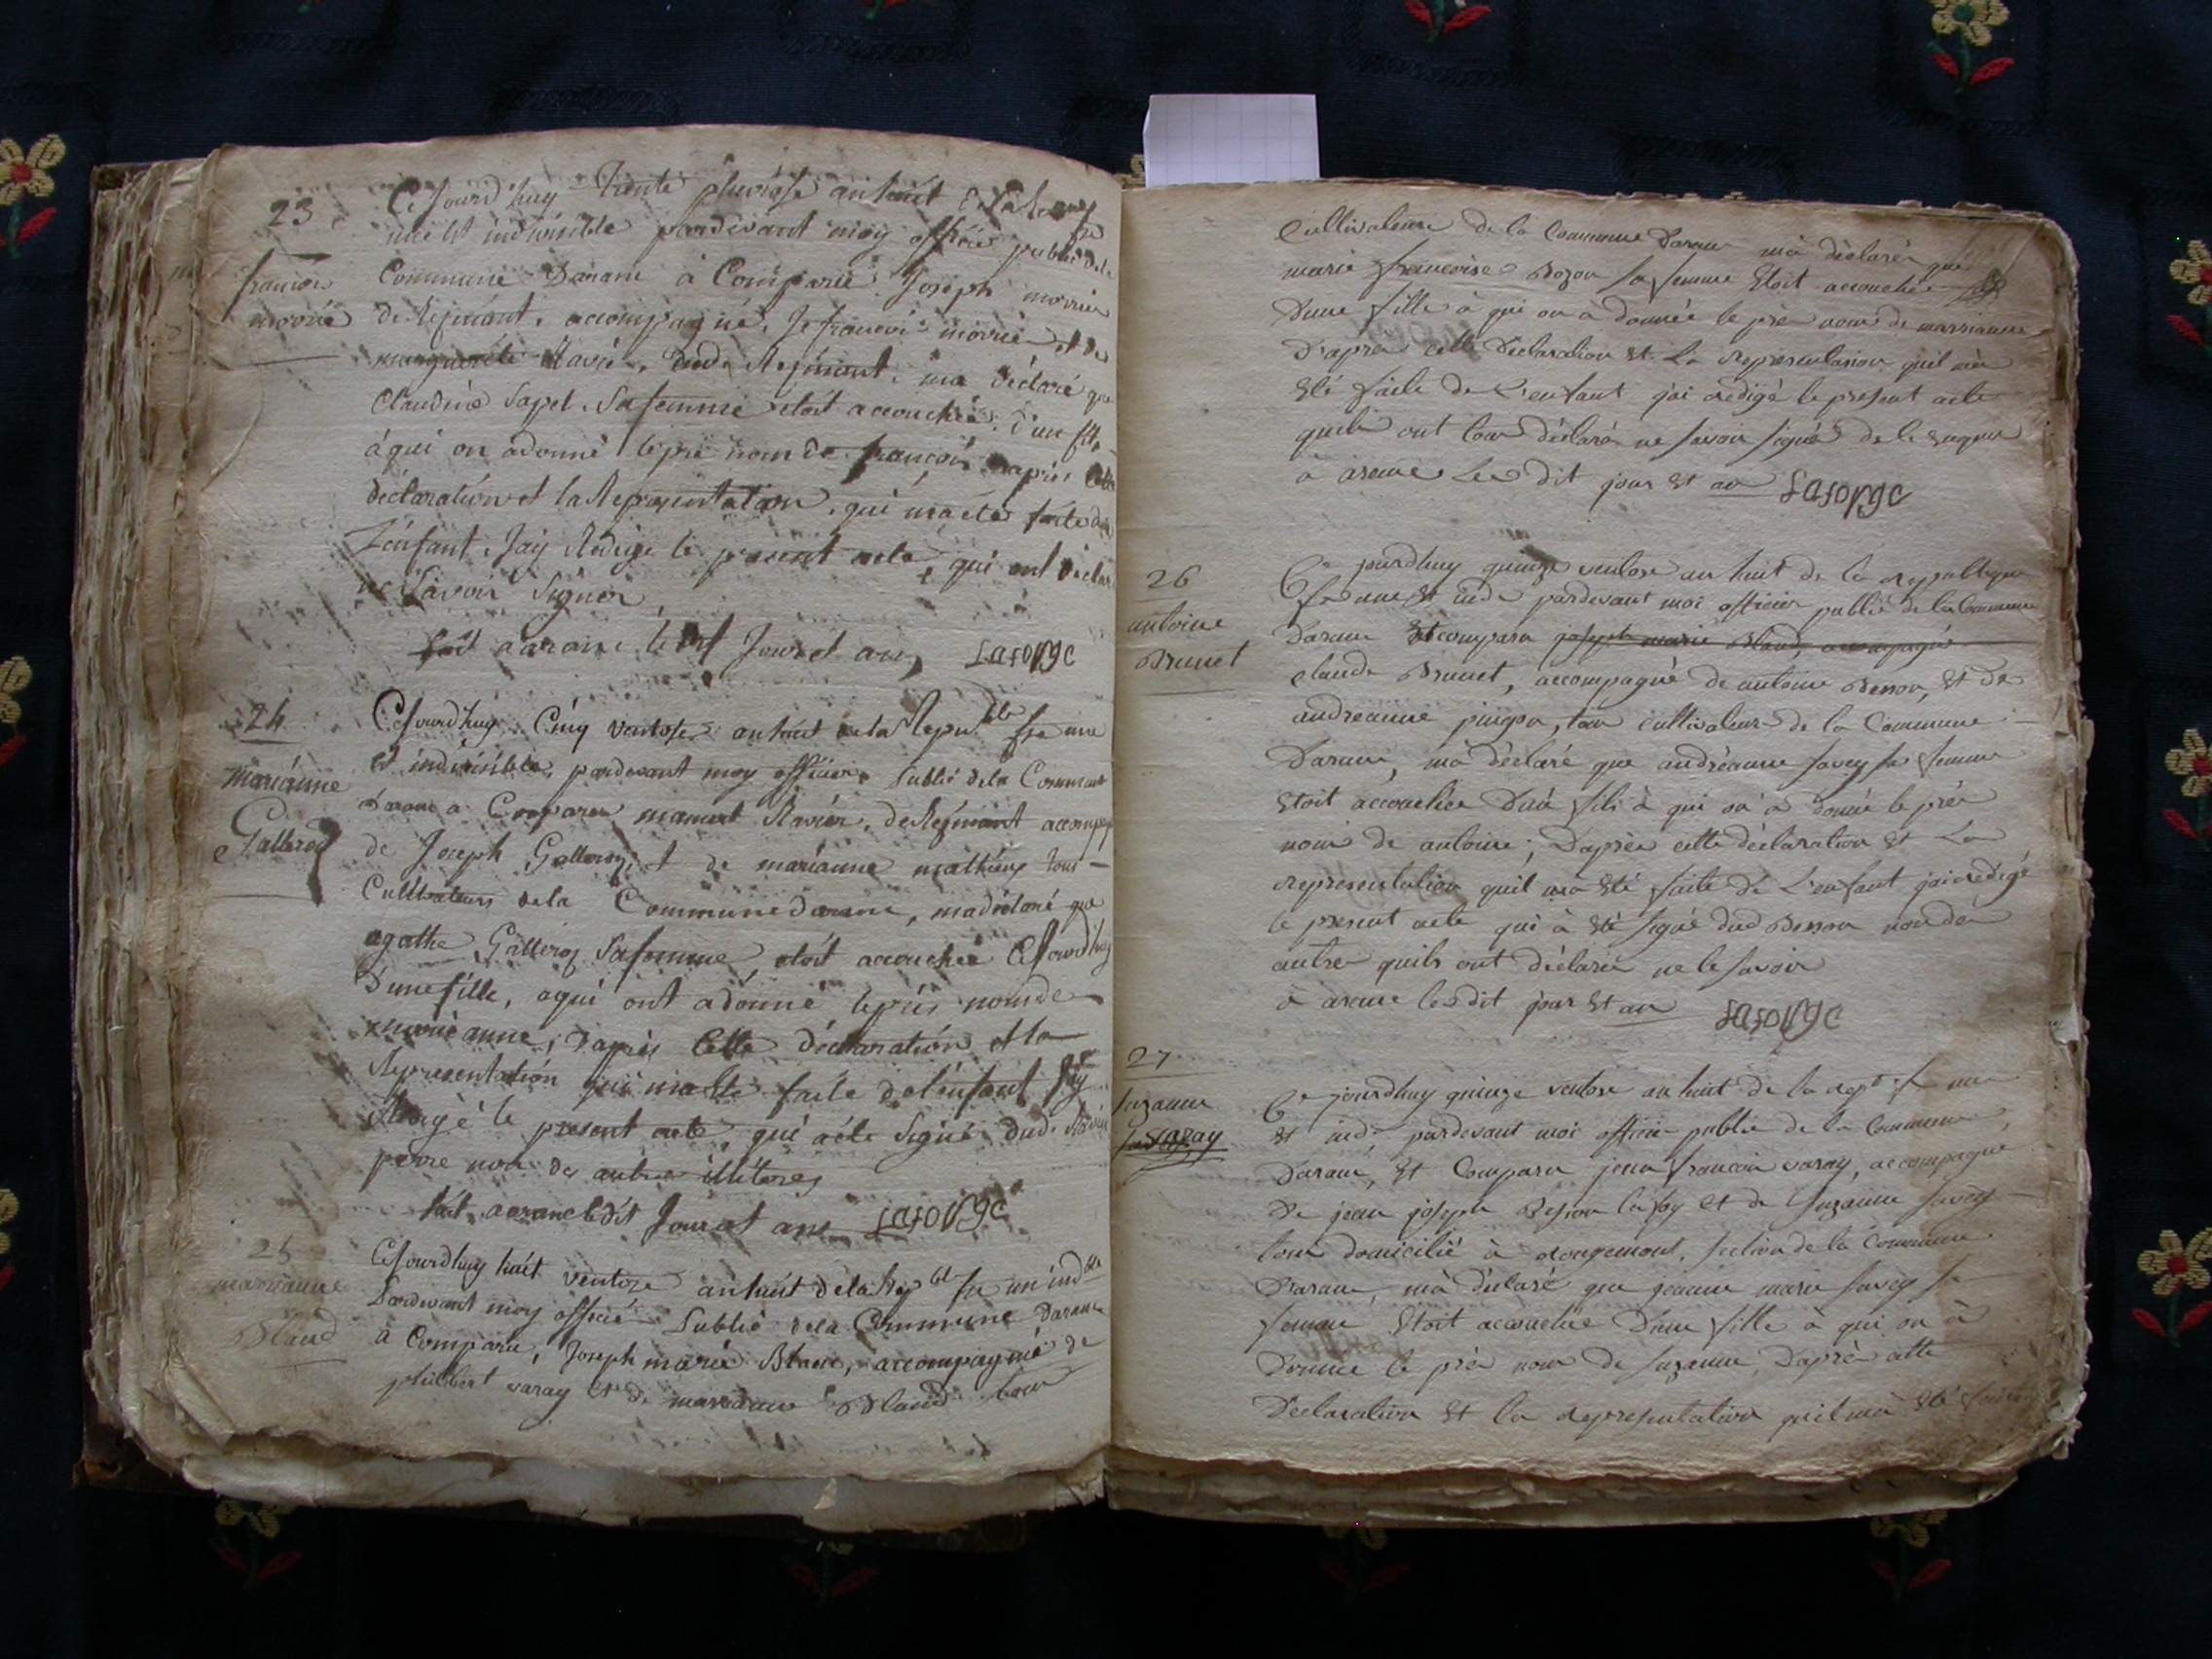 23
francois
morrié
Ce Jourd'huy Trente pluviose an huit de la
une et indivisible pardevant moy officié public de la
Commune Darane à Comparu Joseph morrier
de Rejmont, accompagné, de francois morrié et de
marguerite Ravié, dud. Rejmont, ma déclaré que
Claudine Sapel Safemme étoit accouchée d'un fils
à qui on adonné le pré nom de francois Daprés cette
déclaration et la Representation, qui maété faite de
L'énfant, Jay Rédigé le present acte, qui ont déclaré
ne Savoir Signer
fait aarane le dit Jour et an, Laforge
24
Mariánne
Galleroz
CeJourd'huy Cinq Ventose anhuit de la Repu ble fse une
et indivisible, pardevant moy officiers Public dela Commune
Darane a Comparu manuel Ravier, de Rejmont accompagné
de Joseph Galleroz, et de marianne mathieu tous
Cultivateurs dela Commune darane, madéclaré que
agathe Galleroz Safemme, étoit accouchée CeJourd'huy
d'unefille, aqui ont adonné lepré nomde
marieanne; daprés Cette déclaration et la
Representation qui maété faite delénfant Jay
Rédigé le present acte, qui aété Signé dud. Ravié
perre non des autres illitérés
fait aarane ledit Jour et an Laforge
25
marrianne
Bland
CeJourdhuy huit ventose anhuit dela Rep ble fse un ind ble
Pardevant moy officié Public dela Commune Darane
à Comparu, Joseph marie Blanc, accompagné de
philibert varay et de marrianne Bland tous
Cultivateurs de la Commune Darane mà déclaré que
marie francoise Bozon sa femme Etoit accouchée
Dune fille à qui on à donnée le pré nom de marrianne
D'apres cette Déclaration et La Representation quil mà
Eté faite de L'enfant jai redigé le present acte
quils ont tous déclaré ne savoir signé de le enquis
à arane Les dit jour Et an Laforge
26
antoine
Brunet
Ce jourdhuy quinze ventose an huit de la republique
fse une et indi pardevant moi officier public de la Commune
Darane Et comparu joseph marie Bland, accompagné
claude Brunet, accompagné de antoine Besson, Et de
andreanne pingon, tous cultivateurs de la Commune
Darane, mà déclaré que andréanne savey sa femme
Etoit accouchée D'un fils à qui on a donné le pré
nom de antoine; Daprès cette déclaration Et La
representation quil ma Eté faite de L'enfant jai redigé
le present acte qui à Eté signé dud Besson non des
autre quils ont déclarer ne le savoir
à arane les dit jour Et an Laforge
27
suzanne
varay
Ce jourdhuy quinze ventose an huit de la rep f une
et indi pardevant moi officier public de la Commune
Darane, Et Comparu jean francois varay, accompagné
De jean joseph Besson et de Suzanne savey
tous domicilié à rougemont, section de la Commune
Darane, mà déclaré que jeanne marie savey sa
femme Etoit accouchée D'une fille à qui on à
Donnée le pré nom de suzanne, Daprès cette
Déclaration Et la representation quil mà Eté faite